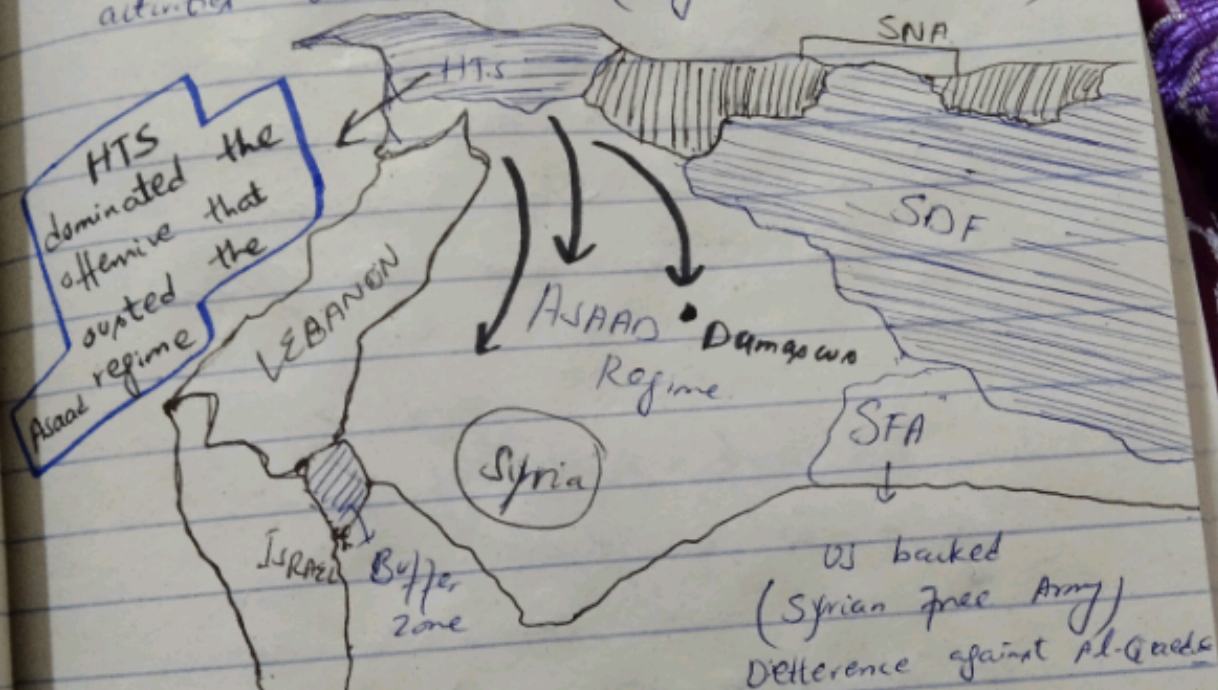 activities
SNA
HTS
HTS
dominated the
offensive that
ousted the
Asaad regime
LEBANON
SDF
ASAAD
Regime
Damascus
SFA
Syria
ISRAEL
Buffer
zone
US backed
(Syrian Free Army)
Detterence against Al-Qaeda